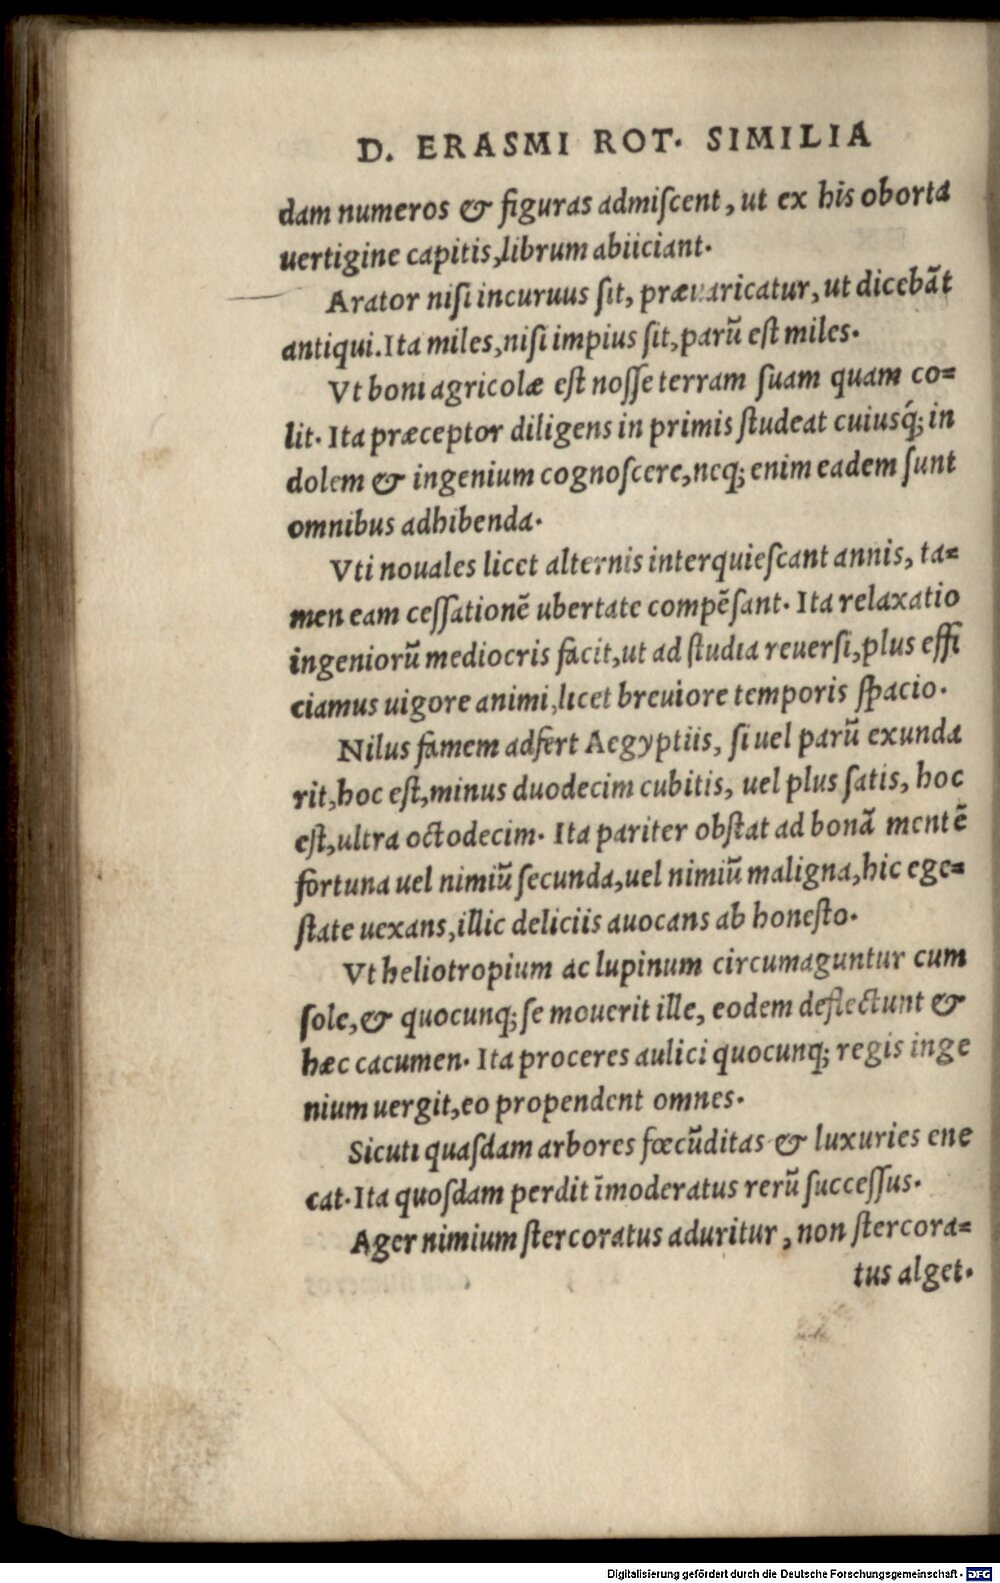 D. ERASMI ROT. SIMILIA
dam numeros & figuras admiſcent, ut ex his oborta
uertigine capitis, librum abiiciant.
Arator niſi incuruus ſit, præuaricatur, ut dicebãt
antiqui. Ita miles, niſi impius ſit, parũ eſt miles.
Vt boni agricolæ eſt noſſe terram ſuam quam co=
lit. Ita præceptor diligens in primis ſtudeat cuiusq́; in
dolem & ingenium cognoſcere, neq; enim eadem ſunt
omnibus adhibenda.
Vti nouales licet alternis interquieſcant annis, ta=
men eam ceſſationẽ ubertate compẽſant. Ita relaxatio
ingeniorũ mediocris facit, ut ad ſtudia reuerſi, plus effi
ciamus uigore animi, licet breuiore temporis ſpacio.
Nilus famem adfert Aegyptiis, ſi uel parũ exunda
rit, hoc eſt, minus duodecim cubitis, uel plus ſatis, hoc
eſt, ultra octodecim. Ita pariter obſtat ad bonã mentẽ
fortuna uel nimiũ ſecunda, uel nimiũ maligna, hic ege=
ſtate uexans, illic deliciis auocans ab honeſto.
Vt heliotropium ac lupinum circumaguntur cum
ſole, & quocunq; ſe mouerit ille, eodem deflectunt &
hæc cacumen. Ita proceres aulici quocunq; regis inge
nium uergit, eo propendent omnes.
Sicuti quaſdam arbores fœcũditas & luxuries ene
cat. Ita quoſdam perdit ĩmoderatus rerũ ſucceſſus.
Ager nimium ſtercoratus aduritur, non ſtercora=
tus alget.
Digitalisierung gefördert durch die Deutsche Forschungsgemeinschaft - DFG